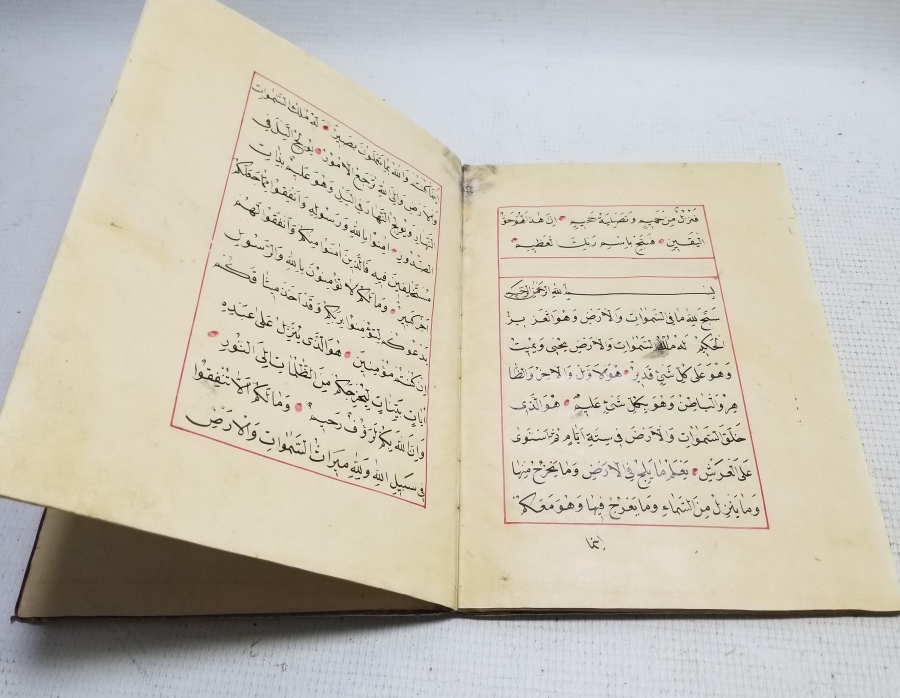 فنزل من حميم وتصلية جحيم ان هذا لهو حق
اليقين فسبح باسم ربك العظيم
بسم الله الرحمن الرحيم
سبح لله ما في السموات والارض وهو العزيز
الحكيم له ملك السموات والارض يحيى ويميت
وهو على كل شئ قدير هو الاول والاخر والظا
هر والباطن وهو بكل شئ عليم هو الذى
خلق السموات والارض في ستة ايام ثم استوى
على العرش يعلم ما يلج في الارض وما يخرج منها
وما ينزل من السماء وما يعرج فيها وهو معكم
اينما
اينما كنتم والله بما تعملون بصير له ملك السموات
والارض والى الله ترجع الامور يولج الليل في
النهار ويولج النهار في اليل وهو عليم بذات
الصدور امنوا بالله ورسوله وانفقوا مما جعلكم
مستخلفين فيه فالذين امنوا منكم وانفقوا لهم
اجر كبير وما لكم لا تؤمنون بالله والرسول
يدعوكم لتؤمنوا بربكم وقد اخذ ميثاقكم
ان كنتم مؤمنين هو الذى ينزل على عبده
ايات بينات ليخرجكم من الظلمات الى النور
وان الله بكم لرؤف رحيم وما لكم الا تنفقوا
في سبيل الله ولله ميراث السموات والارض